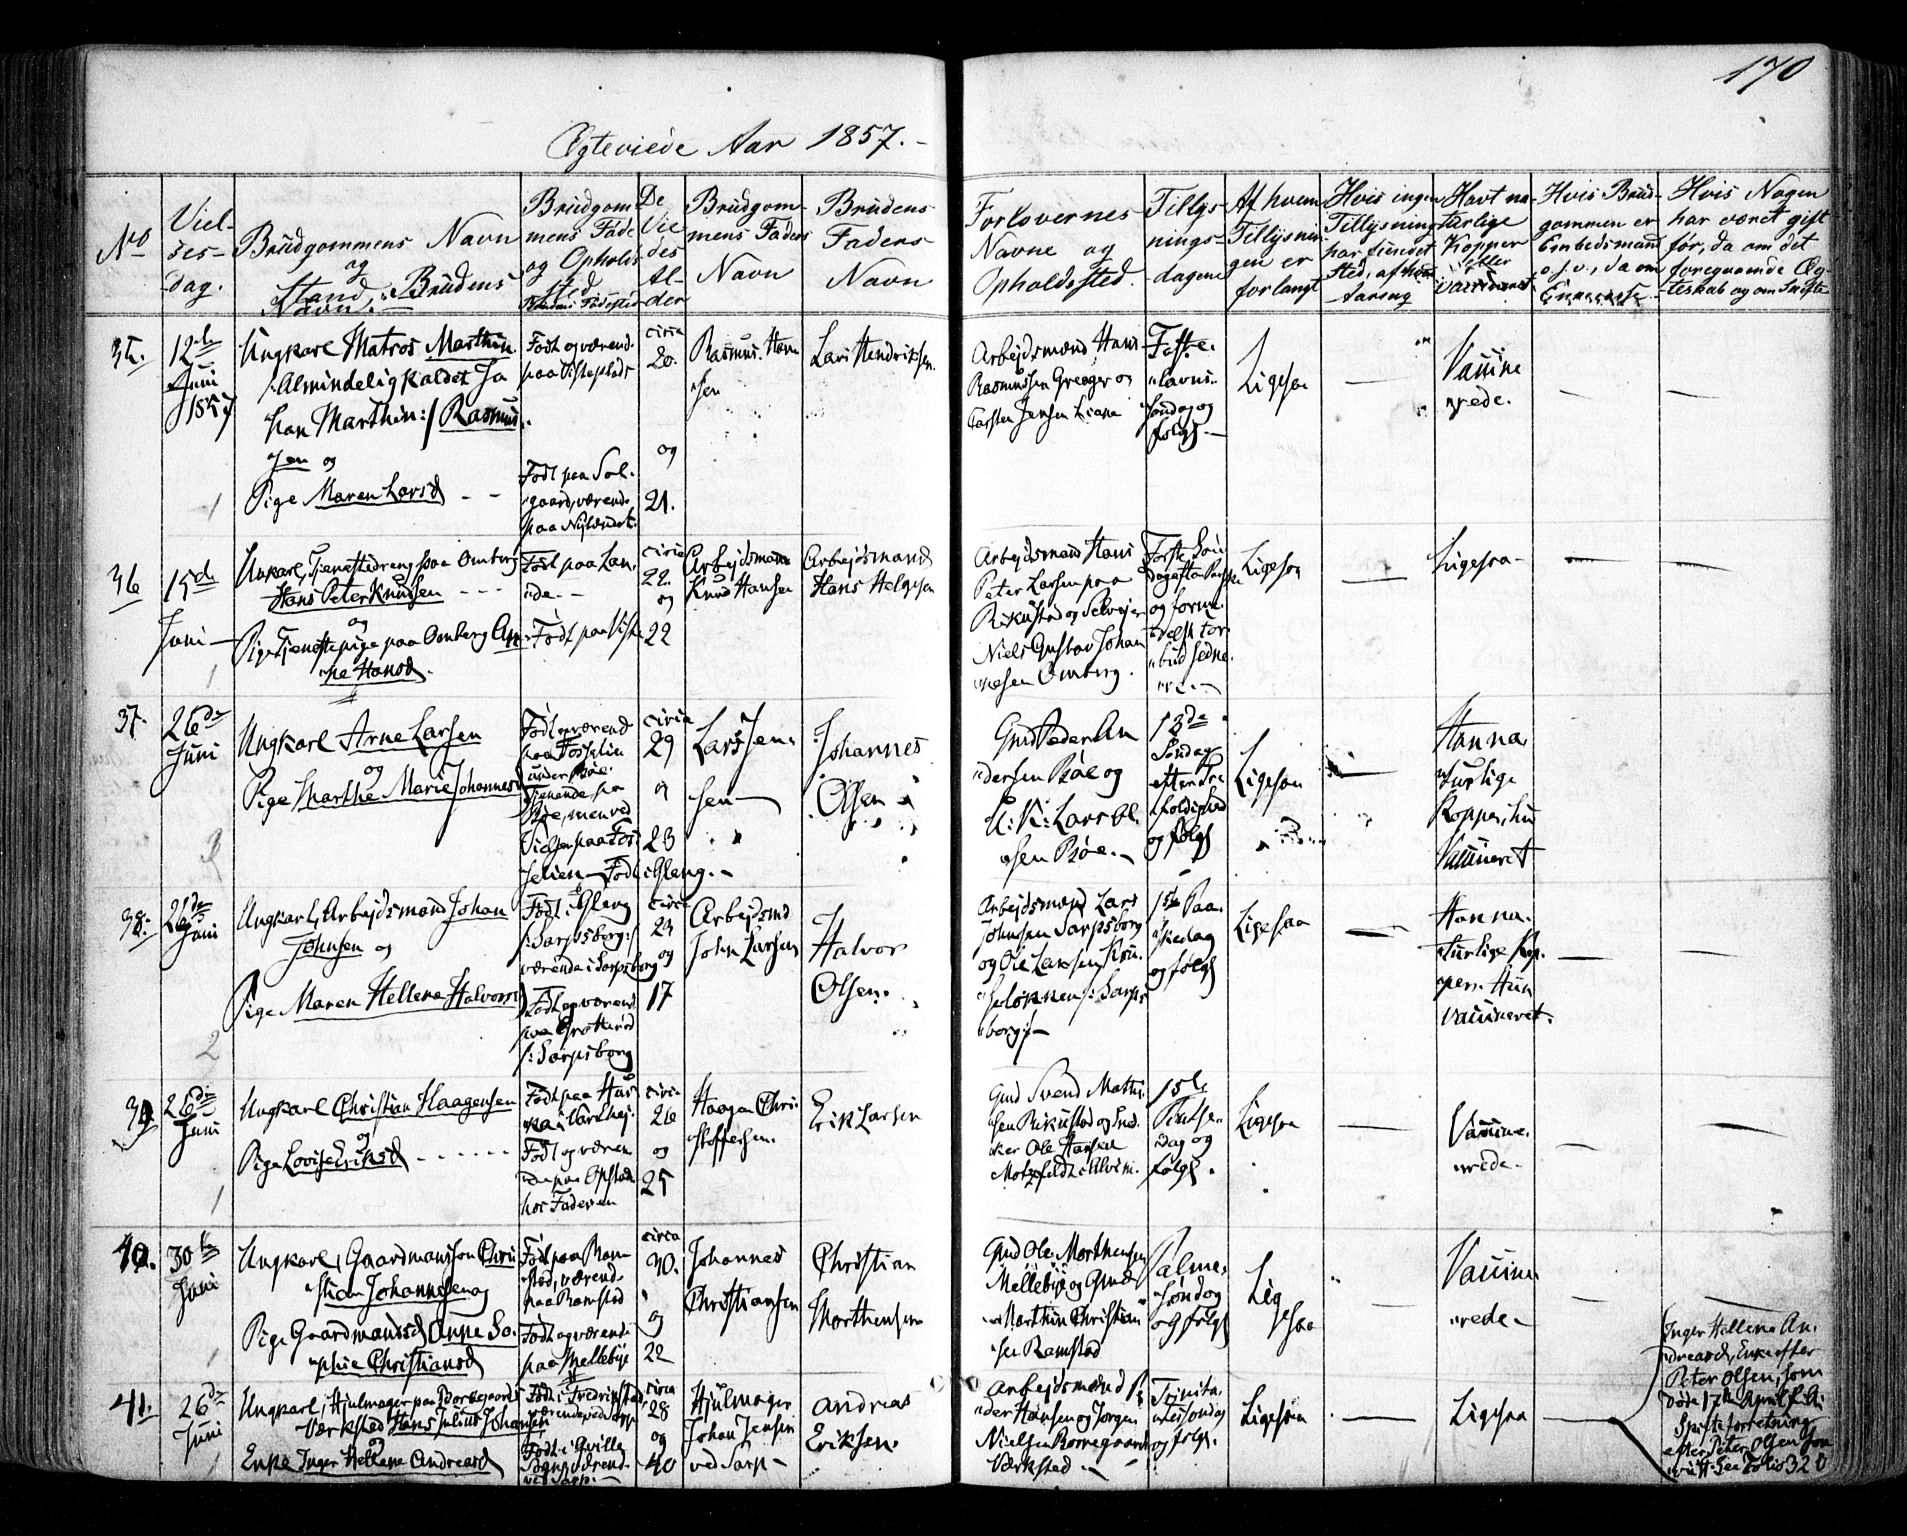 170
Ægteviede Aar 1857.-
No
Viel-
ses-
dag.
Brudgommens Navn
og
Stand, Brudens
Navn.
Brudgom-
mens Føde
og Opholds
sted
De
Vie
des
Al-
der
Brudgom-
mens Faders
Navn
Brudens
Faders
Navn
Forlovernes
Navne og
Opholdssted.
Tillys-
nings-
dagene
Af hvem
Tillysnin-
gen er
forlangt
Hvis ingen
Tillysning
har fundet
Sted, af hvad
Aarsag
Havt na-
turlige
Kopper
eller
vaccineret
Hvis Brud-
gommen er
Embedsmand
o.s.v., da om
Hvis Nogen
har været gift
før, da om det
foregaaende Æg-
teskab og om Skifte
35.
12te
Juni
1857
Ungkarl Matros Marthin
/: Almindelig kaldet Jo
han Marthin:/ Rasmus
sen og
Pige Maren Larsd
Født og værend.
paa
Født paa Sol-
gaard, værend.
paa Nylændet.
circa
20.
og
21.
Rasmus Han
sen
Lars Hendriksen.
Arbejdsmænd Hans
Rasmussen Greager og
Carsten Jensen Liane
Faste-
lavns-
søndag og
følgs.
Ligesaa
Vaccine
rede.
36
15de
Juni
Ungkarl, Tjenestedreng paa Omberg
Hans Peter Knudsen
og
Pige Tjenestepige paa Omberg An
ne Hansd.
Født paa Lan
de.
circa
22.
og
22
Arbejdsmand
Knud Hansen
Arbejdsmand
Hans Helgesen
Arbejdsmand Hans
Peter Larsen paa
Rikustad og Selvejer
Niels Gustav Johan
nesen Omberg.
Ligesaa
Ligesaa
37.
26de
Juni
Ungkarl Arne Larsen
og
Pige Marthe Marie Johannesd
Født og værend
under Bøe.
Tjenende paa
Bøe, men ved
Født i Gleng.
circa
29
og
23
Lars Jen-
sen
Johannes
Olsen
Gmd Peder An
dersen Bøe og
Lars Ol.
sen Bøe.
13de
Søndag
efter Tre
foldighed
og følgs
Ligesaa
Han na-
turlige
Kopper, hun
Vaccineret
38.
26de
Juni
Ungkarl, Arbejdsmand Johan
Johnsen og
Pige Maren Hellene Halvorsd
Født i Gleng
/: Sarpsborg:/
værende i Sarpsborg
Født og værend
paa Grotterød
/: Sarpsborg
circa
23
og
17
Arbejdsmd
John Larsen
Halvor
Olsen.
Arbejdsmænd Lars
Johnsen Sarpsborg
og Ole Larsen Kru-
seløkken /: Sarps
borg:/
1ste Paa-
skedag
og følgs
Ligesaa
Han na-
turlige Kop-
per. Hun
vaccineret.
39
26de
Juni
Ungkarl Christian Haagensen
og
Pige Lovise Eriksd
Født og væren
de paa Opstad
hos Faderen
circa
26
og
25
Haagen Chri-
stoffersen.
Erik Larsen
Gmd Svend Mathi-
sen Rikustad og Snd.
ker Ole Hansen
1ste
Pintse-
dag og
følgs.
Ligesaa
Vaccine-
rede.
40.
30te
Juni
Ungkarl, Gaardmandssøn Chri
stian Johannesen og
Pige Gaardmandsd Anne So-
phie Christiansd
Født paa Ram
stad, værend.
paa Ramstad
Født og værende
paa Mellebye
circa
30.
og
22
Johannes
Christiansen
Christian
Morthensen
Gmd Ole Morthensen
Mellebye og Gmd
Marthin Christian
sen Ramstad
Palme-
søndag
og følgs
Lig
esaa
Vaccine
rede
41.
26de
Juni
Ungkarl, Hjulmager paa Borregaards
Værksted Hans Julius Johansen
og
Enke Inger Hellene Andreasd
Født i Fredrikstad
værende ved Sarp
ved Sarp.
circa
28
og
40
Hjulmager
Johan Jensen
ved Sarp
Andreas
Eriksen.
Arbejdsmænd Pe
der Hansen og Jørgen
Nielsen Borregaards
Værksted.
Trinita-
tissøndag
og følgs.
Ligesaa
Ligesaa
Inger Hellene An-
dreasd, Enke efter
Peter Olsen, som
døde 17de April
Skifteforretning
efter Peter Olsen
See Folio 320